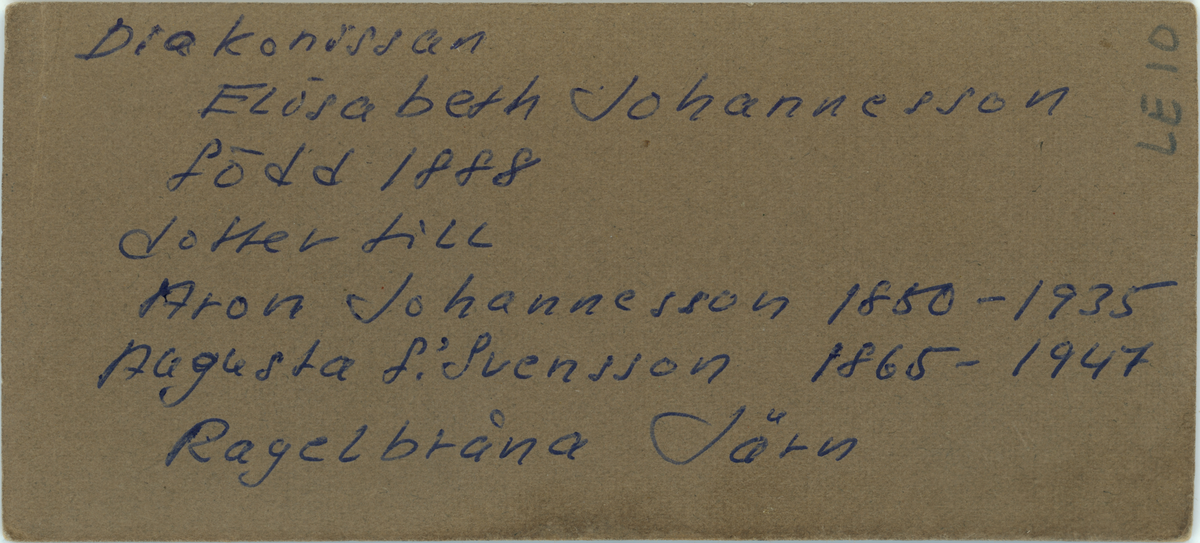 Diakonissan
Elisabeth Johannesson
född 1888
dotter till
Aron Johannesson 1850-1935
Augusta f. Svensson 1865-1947
Ragelbråna Järn
LE 10